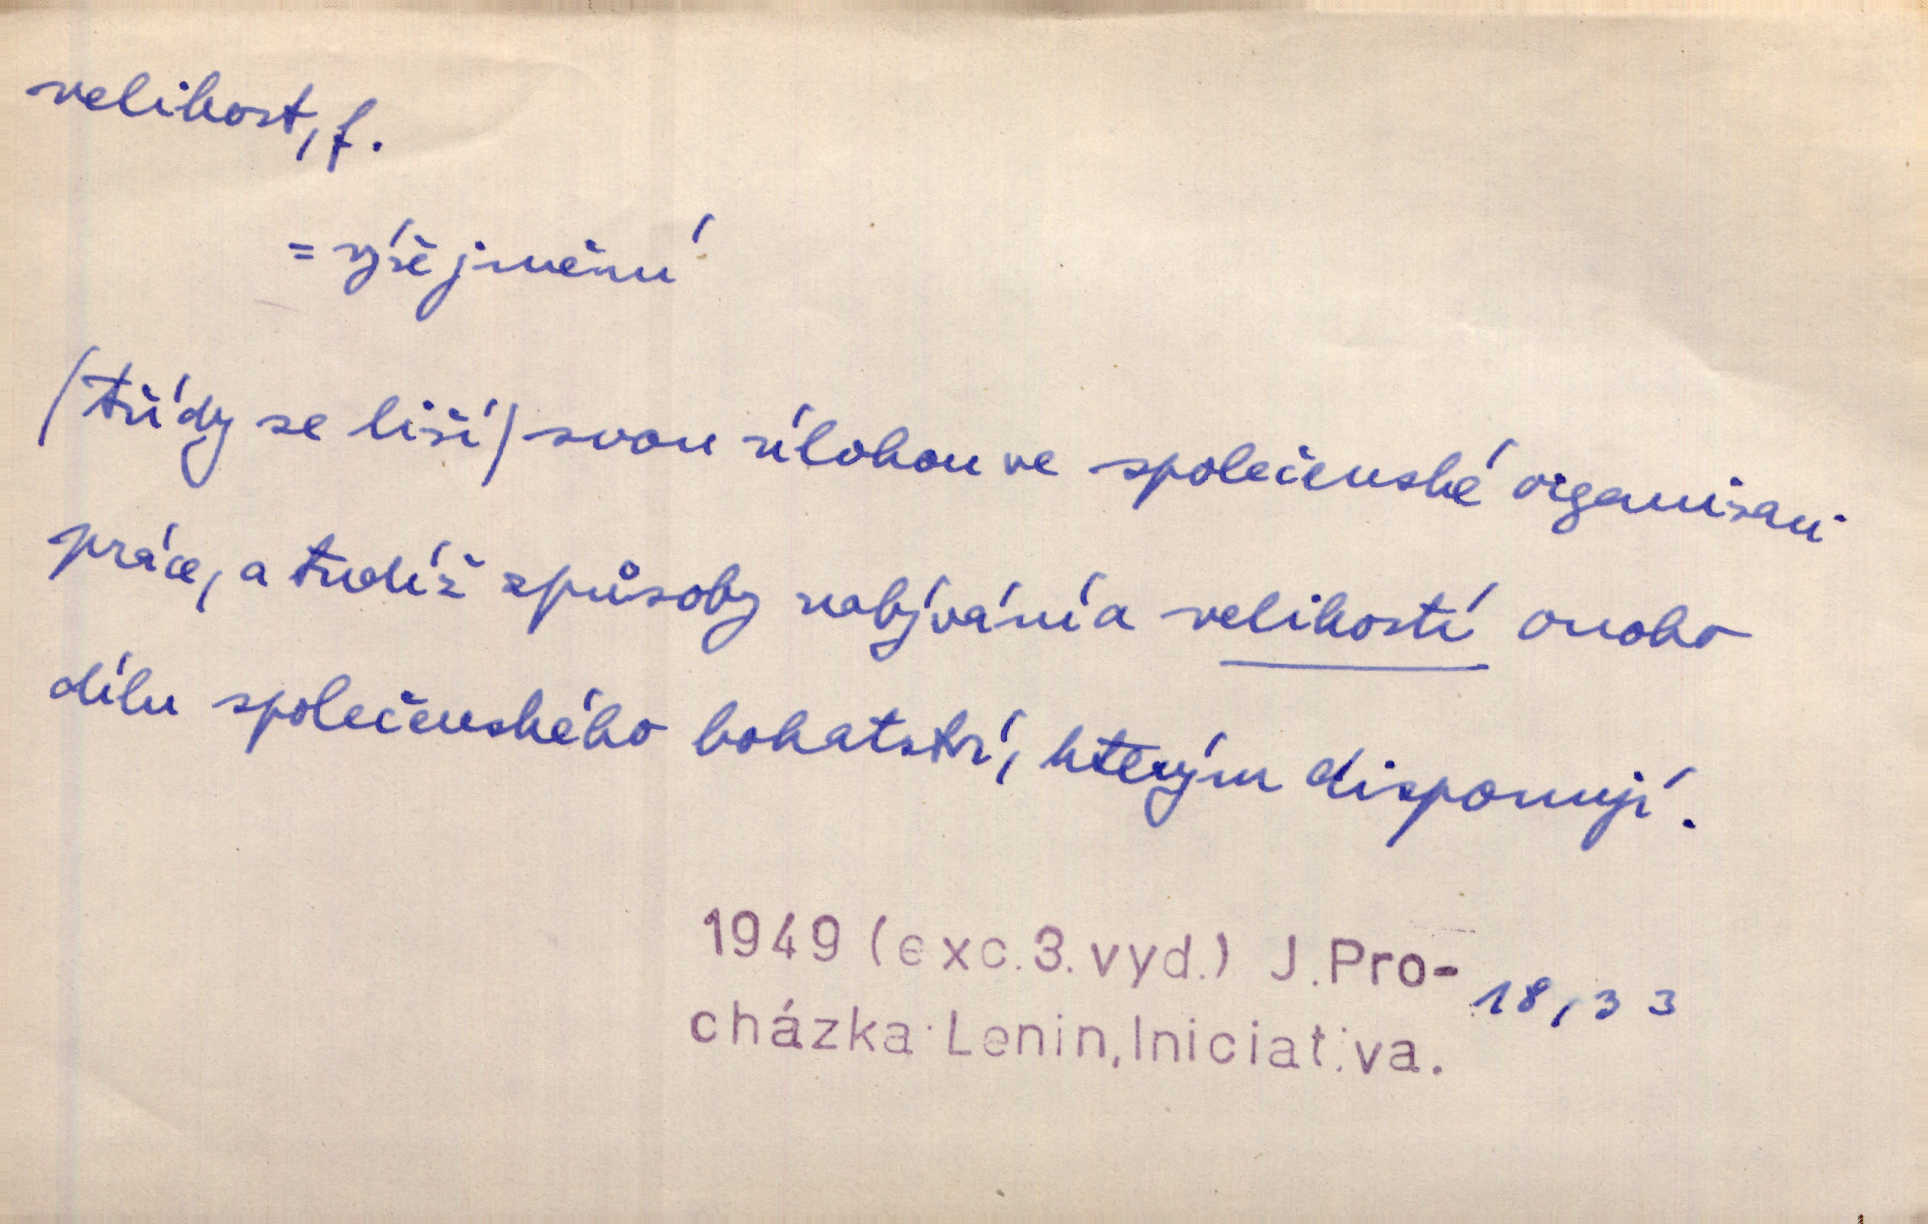 velikost, f.
= výše jmění
/třídy se liší/ svou úlohou ve společenské organisaci
práce, a tudíž způsoby nabývání a velikostí onoho
dílu společenského bohatství, kterým disponují.
1949 (exc. 3. vyd.) J. Pro-
cházka: Lenin, Iniciativa. 18, 33